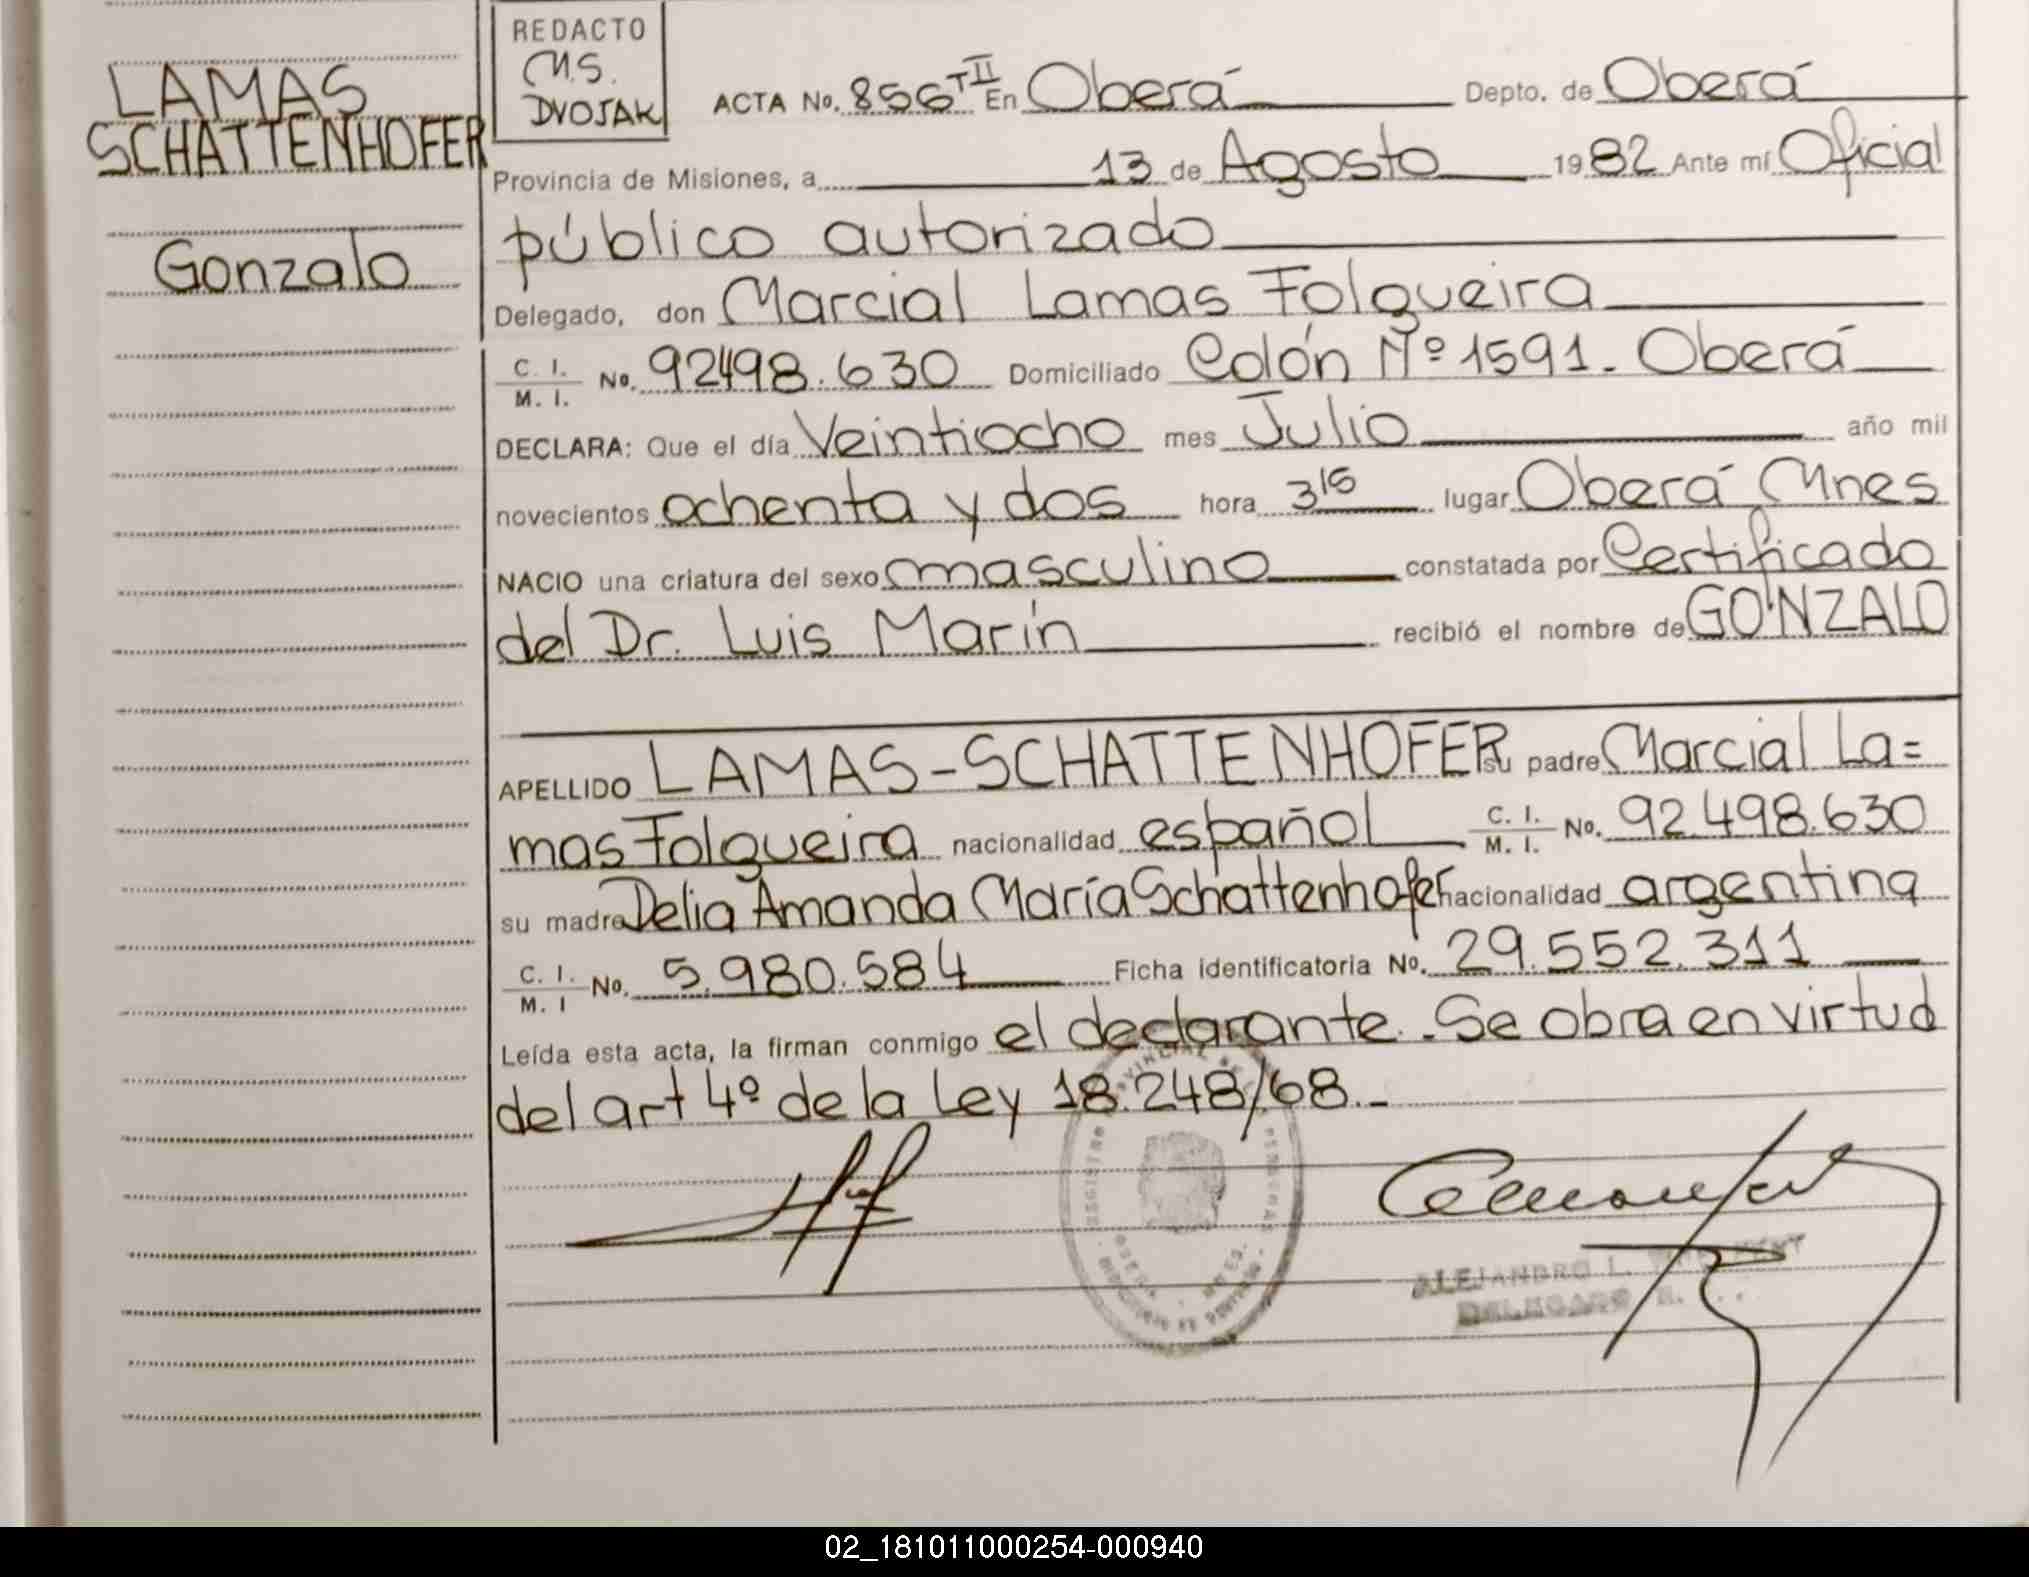 LAMAS
SCHATTENHOFER
Gonzalo
REDACTO
M.S.
DVOJAK
ACTA No. 856 T II En Oberá Depto. de Oberá
Provincia de Misiones, a 13 de Agosto 1982 Ante mí Oficial
público autorizado
Delegado, don Marcial Lamas Folgueira
C. I. / M. I. No. 92498.630 Domiciliado Colón Nº 1591. Oberá
DECLARA: Que el día Veintiocho mes Julio año mil
novecientos ochenta y dos hora 3 15 lugar Oberá Mnes
NACIO una criatura del sexo masculino constatada por Certificado
del Dr. Luis Marín recibió el nombre de GONZALO
APELLIDO LAMAS-SCHATTENHOFER su padre Marcial La=
mas Folgueira nacionalidad español C. I. / M. I. No. 92.498.630
su madre Delia Amanda María Schattenhofer nacionalidad argentina
C. I. / M. I No. 5.980.584 Ficha identificatoria No. 29.552.311
Leída esta acta, la firman conmigo el declarante.-Se obra en virtud
del art 4º de la Ley 18.248/68.-
ALEJANDRO L.
DELEGADO
02_181011000254-000940